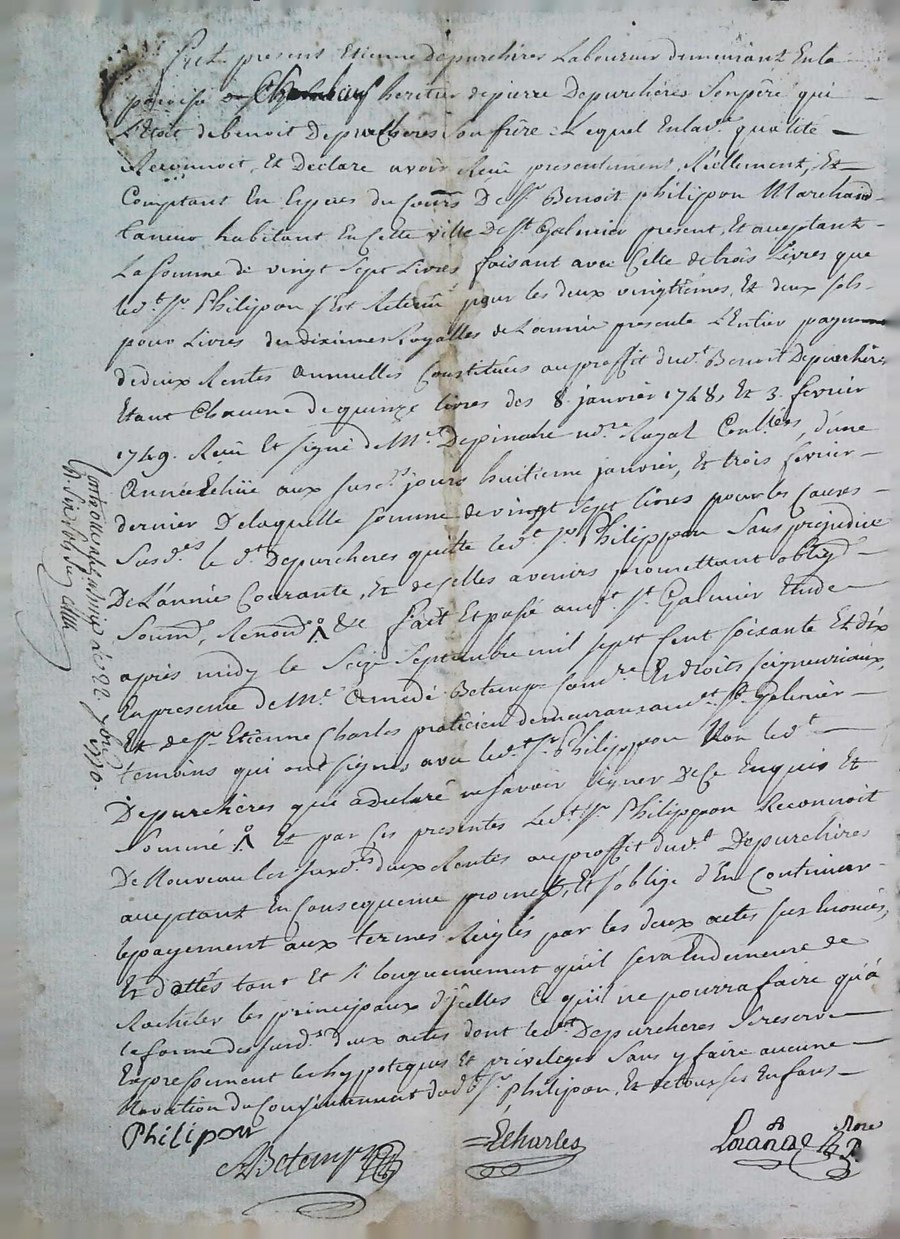 fut present Etienne Depurcheres Laboureur demeurant En la
paroisse heritier de pierre Depurcheres Son pere qui
L'Etoit de benoit Depurcheres Son frere Lequel En lad.e qualité
Reconnoit, Et Declare avoir Reçu presentement, Réellement, Et
Comptant En Especes du Cours De Sr. Benoit philippon Marchand
Taneur habitant En Cette ville De St. Galmier present, Et aceptant
La Somme de vingt Sept Livres faisant avec Celle de trois Livres que
led.t Sr. Philipon s'Est Retenu pour les deux vingtièmes, Et deux sols
pour Livres du dixieme Royalles de L'année presente L'Entier payement
de deux Rentes annuelles Constituées au proffit dud.t Benoit Depurchères
Etant Chacune de quinze livres des 8. janvier 1748, Et 3. fevrier
1749. Reçu Et Signé de Mre. Depinature no.re Royal d'une
Année Echüe aux susd. jours huitieme janvier, Et trois fevrier
dernier De laquelle Somme de vingt Sept livres pour les Causes
Susd.es le d.t Depurcheres quitte led.t Sr. Philippon Sans prejudice
De L'année Courante, Et de Celles avenir, promettant oblig.t
Soum.t, Renonc.t &c fait Et passé aud.t St. Galmier Etude
après midy le Seize Septembre mil Sept Cent Soixante Et dix
En presence de Me. Amedé Betemps Com.re En droits Seigneuriaux,
Et de Sr. Etienne Charles praticien demeurans aud.t St. Galmier
temoins qui ont signés avec led.t Sr. Philippon Non led.t
Depurchères que a declaré ne savoir signer De Ce Enquis Et
Sommé Et par Ces presentes led.t Sr. Philippon Reconnoit
De Nouveau les susd.es deux Rentes au proffit dud.t Depurchères
aceptant En Consequence promet, Et s'oblige d'En Continuer
le payement aux termes Réglés par les deux actes sus Enoncés,
Et dattés tant Et si longuement qu'il sera En demeure de
Racheter les principaux d'ycelles Ce qu'il ne pourra faire qu'à
la forme des susd.s deux actes dont led.t Depurcheres Se reserve
Expressement les hypoteques Et privileges Sans y faire aucune
Novation du Consentement dud.t Sr. Philipon, Et de tous ses Enfans
Philipon
ABetemps
ECharles
Controllé
le 22 7bre
1770.